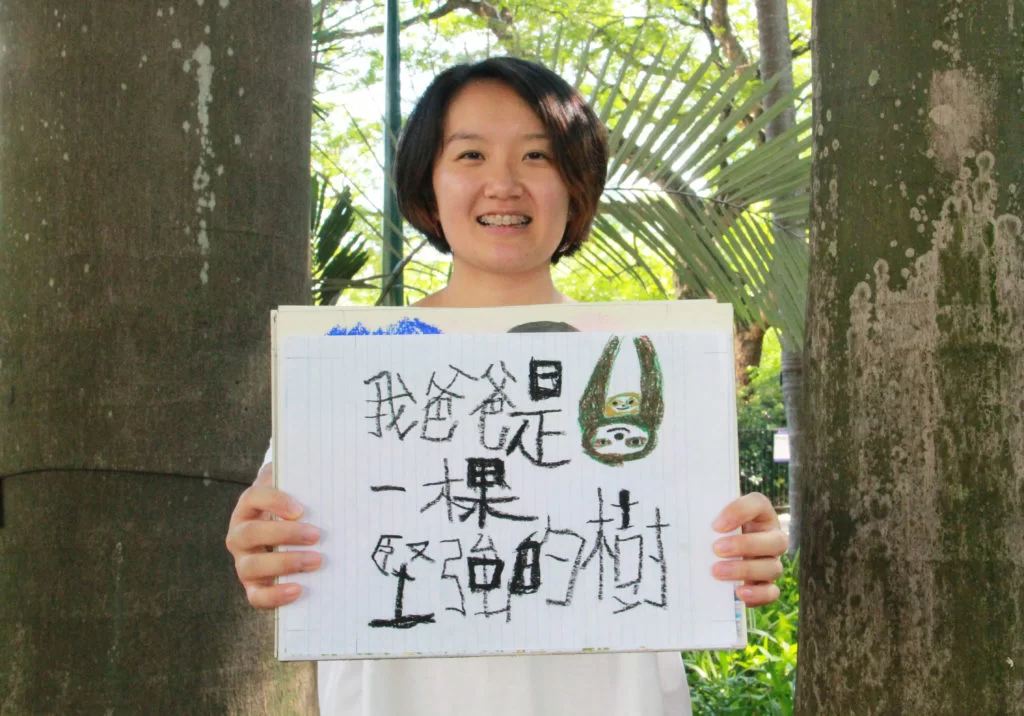 我爸爸是
一棵
堅強的樹